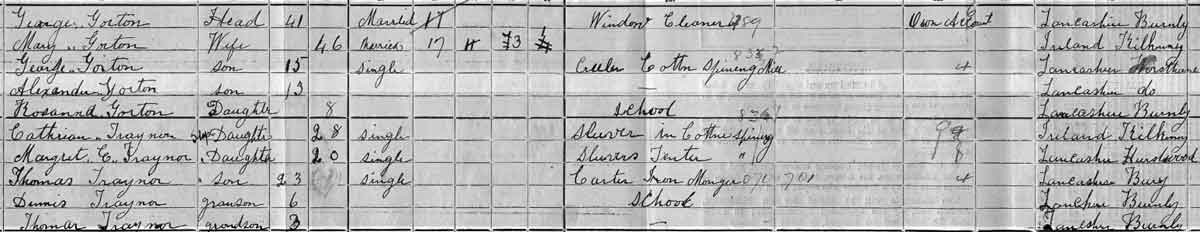 George Gorton Head 41 Married 17 Window Cleaner 789 Own Account Lancashire Burnly
Mary Gorton Wife 46 Married 17 Ireland Kilkinny
George Gorton son 15 single Creeler Cottn Spining Lancashire
Alexander Gorton son 13 — Lancashire do
Rosanna Gorton Daughter 8 School Lancashire Burnly
Cathrian Traynor Step Daughter 28 single Sluver in Cottn Spining Ireland Kilkinny
Margret C Traynor Daughter 20 single Sluvers Tenter " Lancashire Hurstwood
Thomas Traynor son 23 single Carter Iron Monger Lancashire Bury
Dennis Traynor granson 6 School Lanchire Burnly
Thomas Traynor grandson 3 — Lanceshire Burnly